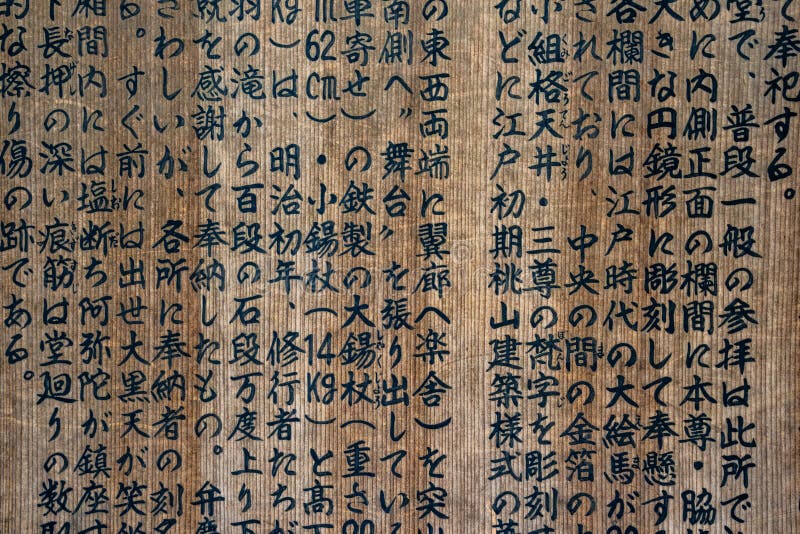 て奉祀する。
堂で、普段一般の参拝は此所で
めに内側正面の欄間に本尊・脇
大きな円鏡形に彫刻して奉懸す
各欄間には江戸時代の大絵馬が
されており、中央の間の金箔の
小組格天井・三尊の梵字を彫刻
などに江戸初期桃山建築様式の
の東西両端に翼廊へ楽舎)を突
南側へ〝舞台〟を張り出している
車寄せ)の鉄製の大錫杖(重さ90
m62cm)・小錫杖(14Kg)と高
Kg)は、明治初年、修行者たちが
羽の滝から百段の石段万度上り下
統を感謝して奉納したもの。弁慶
さわしいが、各所に奉納者の刻名
る。すぐ前には出世大黒天が笑
廂間内には塩断ち阿弥陀が鎮座す
下長押の深い痕筋は堂廻りの数
的な擦り傷の跡である。